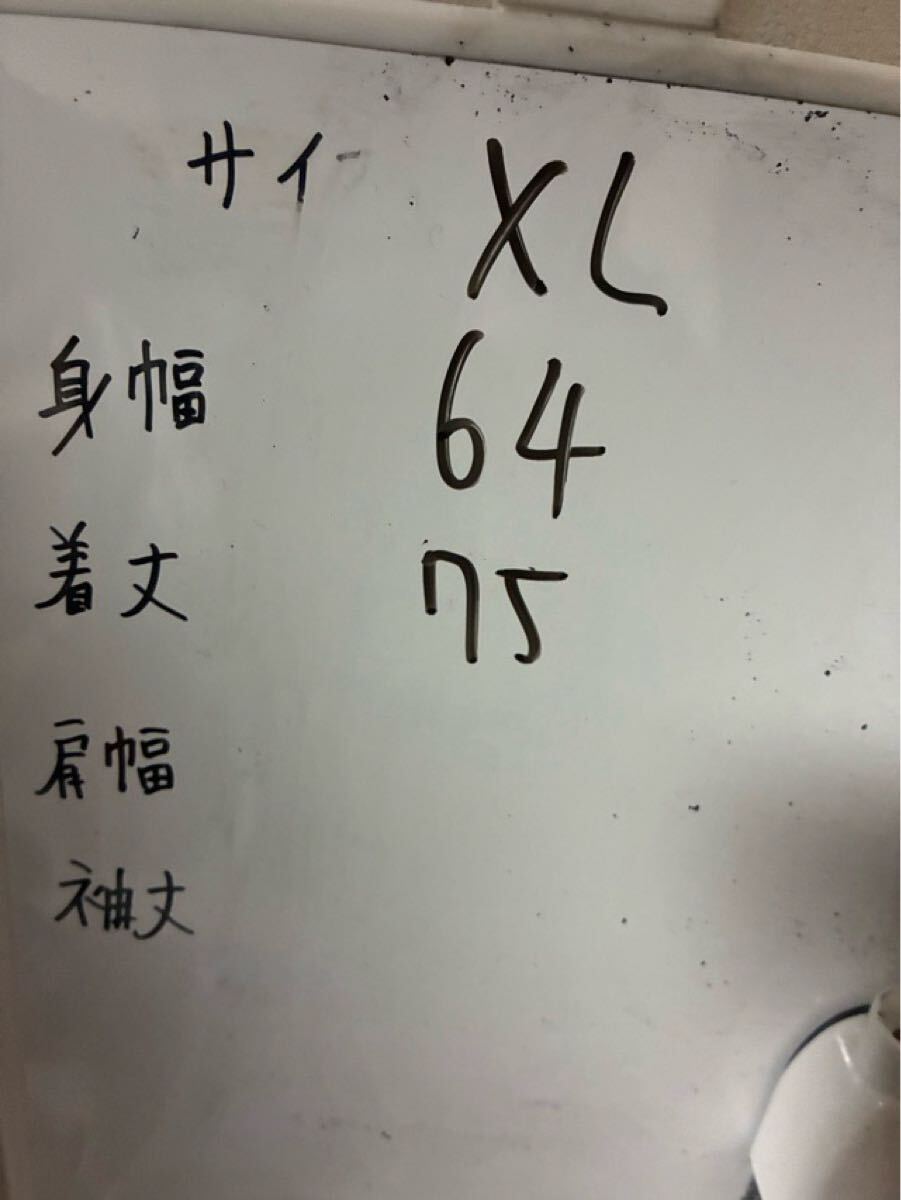 サイ XL
身幅 64
着丈 75
肩幅
袖丈